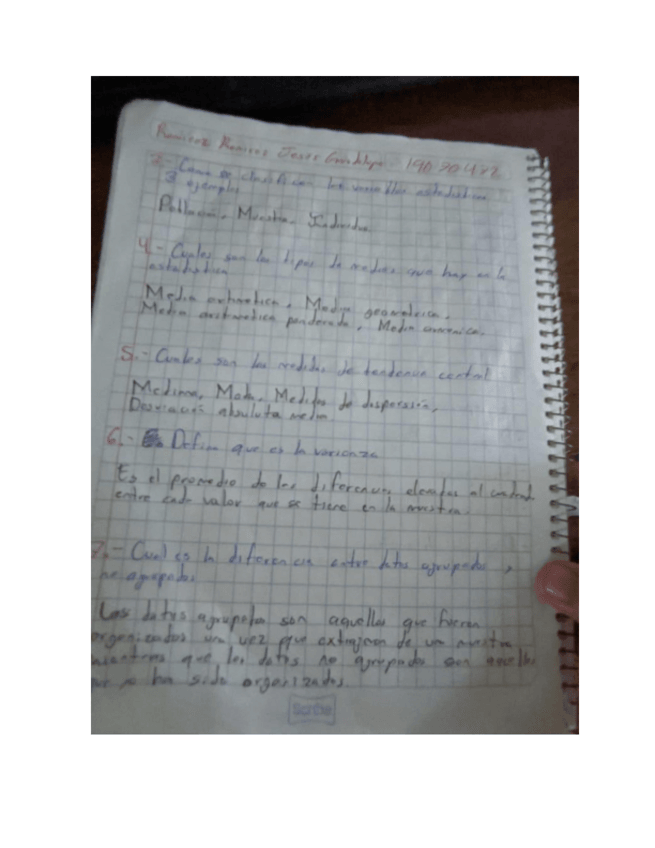 Ramirez Ramirez Jesus Guadalupe 190
2- Como se clasifican las variables estadisticas
3 ejemplos
Poblacion, Muestra, Individuo
4.- Cuales son los tipos de medias que hay en la
estadistica
Media aritmetica, Media geometrica,
Media aritmetica ponderada, Media armonica.
5.- Cuales son las medidas de tendencia central
Mediana, Moda, Medidas de dispersión,
Desviación absoluta media
6.- Define que es la varianza
Es el promedio de las diferencias elevadas al cuadrado
entre cada valor que se tiene en la muestra.
7.- Cual es la diferencia entre datos agrupados y
no agrupados
Los datos agrupados son aquellos que fueron
organizados una vez que extrajeron de una muestra
mientras que los datos no agrupados son aquellos
que no ha sido organizados.
Scribe